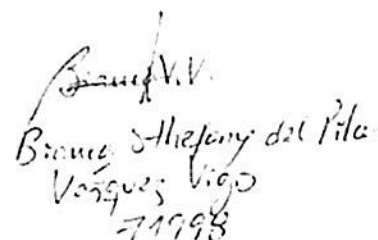 Bianca V.V.
Bianca Sthefany del Pila
Vasquez Vigo
71998